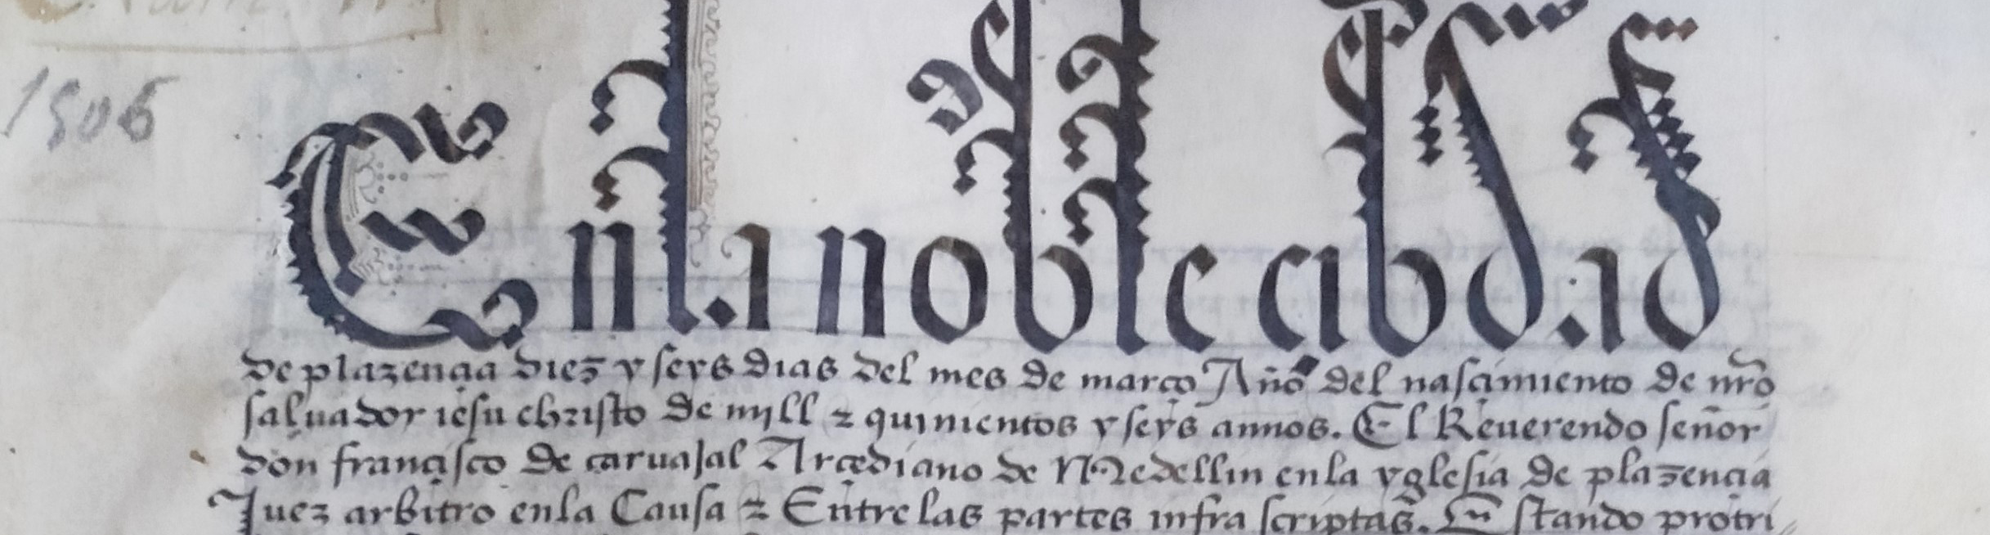 1506
En la noble çibdad
de plazençia diez y seys dias del mes de março Año del nasçimiento de nr̃o
saluador iesu christo de mjll z qujnientos y seys annos. El Reuerendo señor
don françisco de caruajal Arçediano de Medellin enla yglesia de plazençia
Juez arbitro enla Causa z Entre las partes infra scriptas. Estando